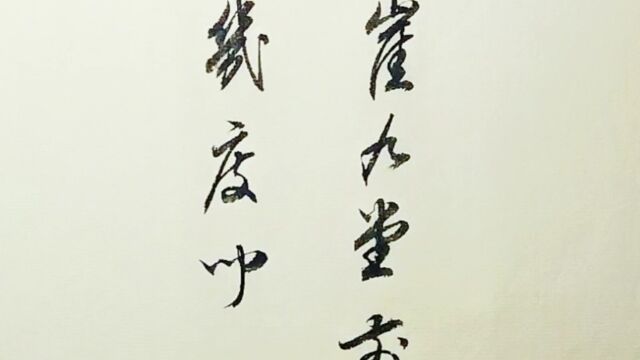 崔九堂前
幾度聞